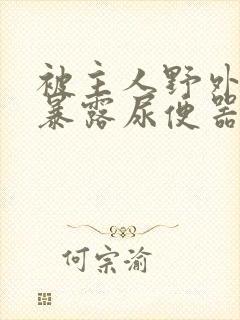 被主人野外
暴露尿便器
何宗渝